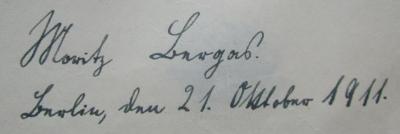 Moritz Bergas.
Berlin, den 21. Oktober 1911.